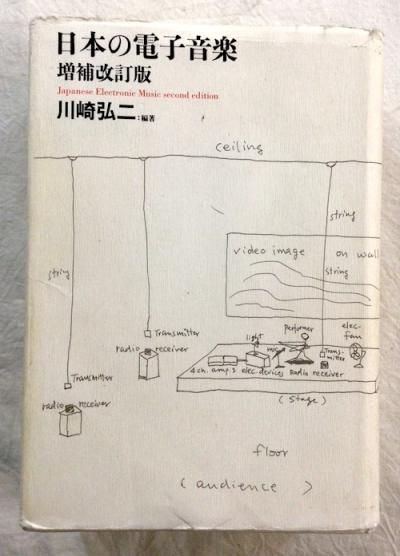 日本の電子音楽
増補改訂版
Japanese Electronic Music second edition
川崎弘二:編著
ceiling
string
video image on wall
string
string
Transmitter
radio receiver
light
mic
performer
Trans-
mitter
elec.
fan
Transmitter
4 ch. amp.s elec. devices radio receiver
radio receiver
(stage)
floor
(audience)